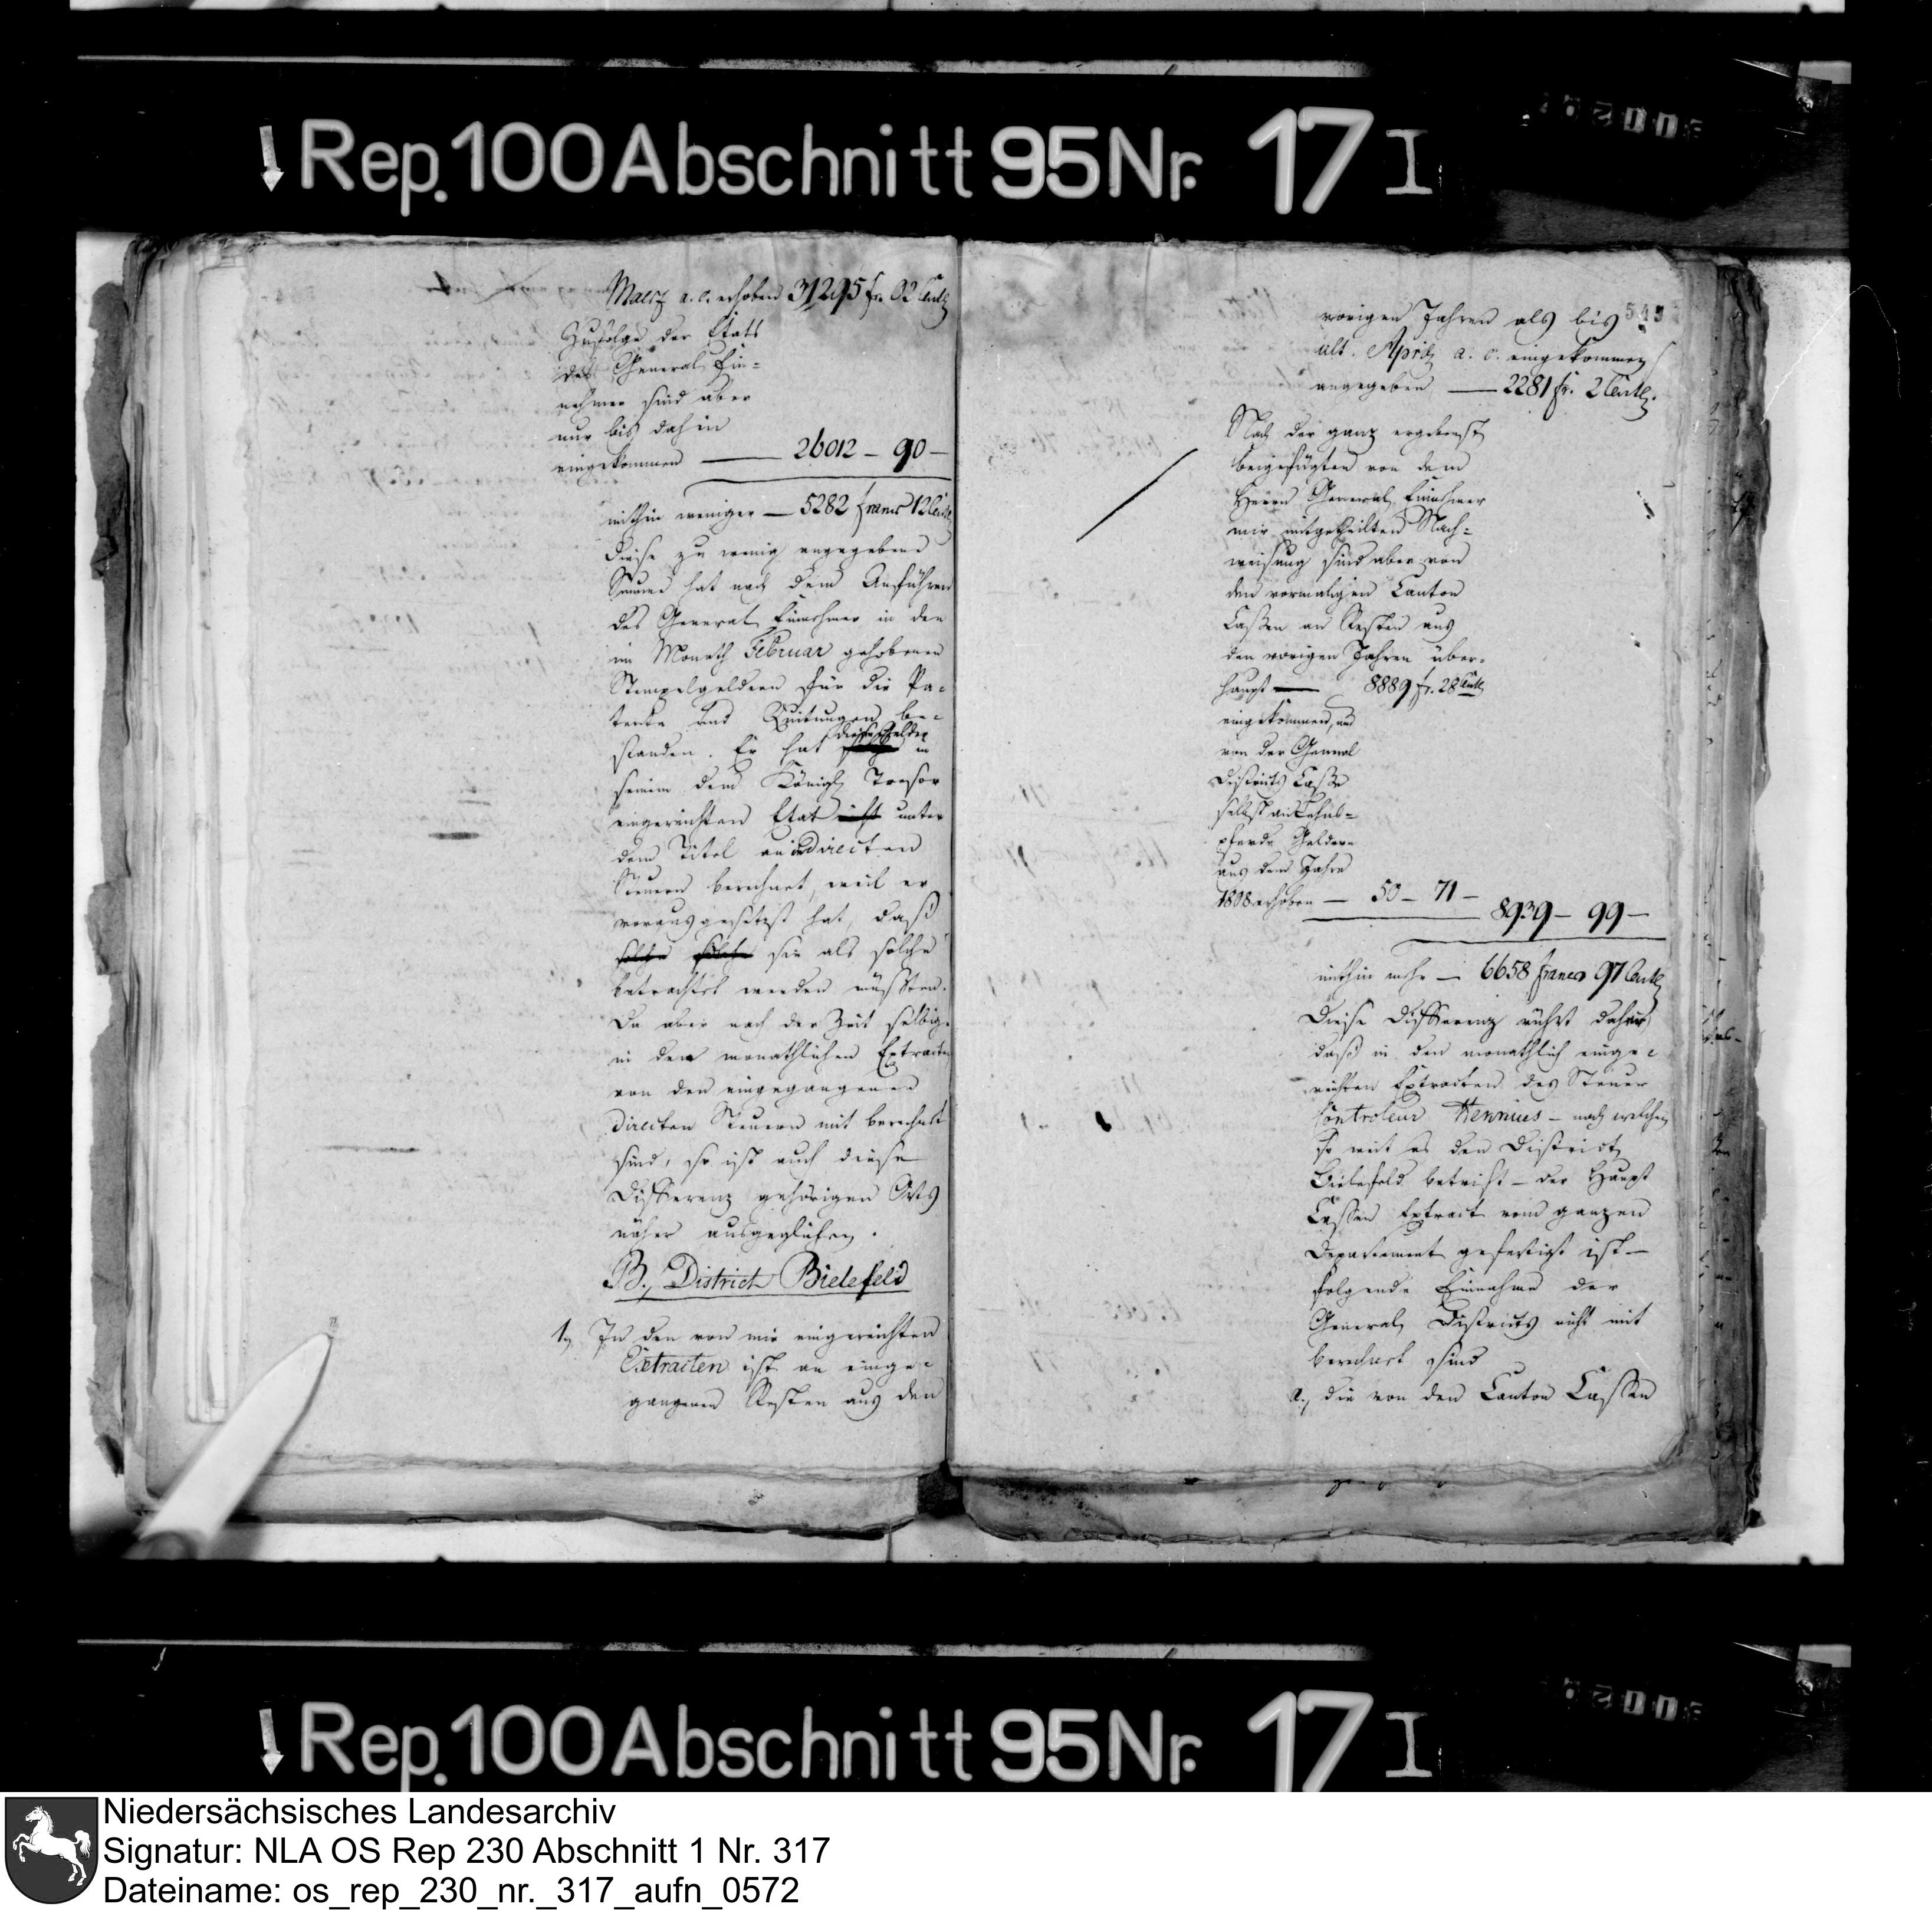 Rep. 100 Abschnitt 95 Nr. 17 I
Maerz a. c. erhoben 31295 fr. 02 Centz
Zufolge der Etats
des General Ein-
nehmer sind aber
nur bis dahin
eingekommen — 26012 – 90 –
mithin weniger — 5282 francs 12 Centz
Diese zu wenig angegebene
Summe hat nach dem Anführen
des General Einnehmer in den
im Monath Februar gehobenen
Stempelgeldern für die Pa-
tente und Quitungen be-
standen. Er hat diese Gelder in
seinem dem Königl. Tresor
eingereichten Etat unter
dem Titel an indirecten
Steuern berechnet, weil er
vorausgesetzt hat, daß
sie als solche
betrachtet werden müssten.
Da aber nach der Zeit selbige
in den monathlichen Extracten
von den eingegangenen
directen Steuern mit berechnet
sind, so ist auch diese
Differenz gehörigen Orts
näher ausgeglichen.
B., District Bielefeld
1., In den von mir eingereichten
Extracten ist an einge-
gangenen Resten aus den
543
vorigen Jahren als bis
ult. April a. c. eingekommen
angegeben — 2281 fr. 2 Centz.
Nach der ganz ergebenst
beigefügten von dem
Herrn General Einnehmer
mir mitgetheilten Nach-
weisung sind aber von
den vormaligen Canton
Cassen an Resten aus
den vorigen Jahren über-
haupt — 8889 fr. 28 Centz
eingekommen, und
von der General
Districts Casse
selbst an Lehns-
pferde Geldern
aus dem Jahre
1808 erhoben — 50 – 71 –
8939 – 99 –
mithin mehr — 6658 francs 97 Centz
Diese Differenz rührt daher,
daß in den monathlich einge-
reichten Extracten des Steuer
Controleur Hennius – nach welchen
so weit es den District
Bielefeld betrift – der Haupt
Cassen Extract vom ganzen
Departement gefertigt ist –
folgende Einnahme der
General Districts nicht mit
berechnet sind
a., die von den Canton Cassen
Rep. 100 Abschnitt 95 Nr. 17 I
Niedersächsisches Landesarchiv
Signatur: NLA OS Rep 230 Abschnitt 1 Nr. 317
Dateiname: os_rep_230_nr._317_aufn_0572